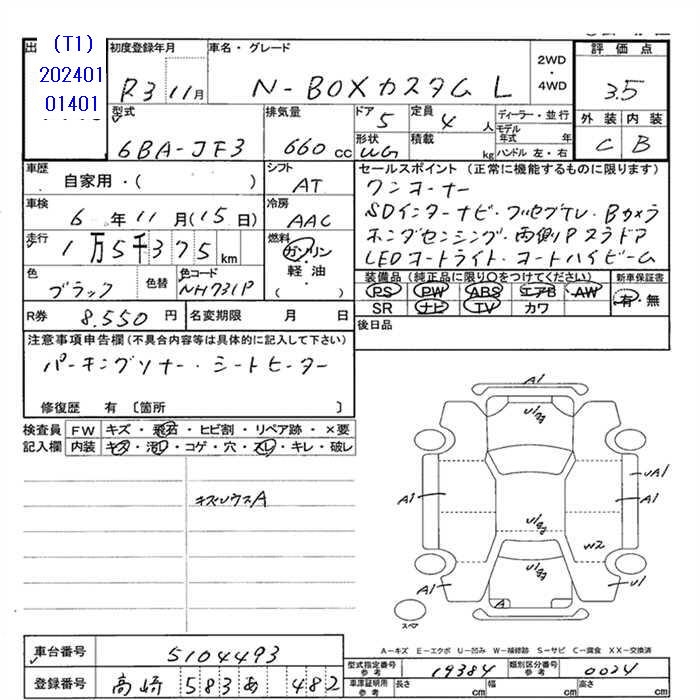 出 (T1)
202401
01401
初度登録年月
R3 11月
車名・グレード
N-BOXカスタム L
2WD
・
4WD
評価点
3.5
外装 内装
C B
型式
6BA-JF3
排気量
660 cc
ドア
5
定員
4 人
形状
WG
積載
kg
ディーラー・並行
モデル
年式 年
ハンドル 左・右
車歴
自家用・( )
シフト
AT
車検
6年11月(15日)
冷房
AAC
走行
1万5千375km
燃料
ガソリン
軽油
( )
色
ブラック
色替
色コード
NH731P
R券 8.550 円
名変期限 月 日
セールスポイント (正常に機能するものに限ります)
ワンオーナー
SDインターナビ・フルセグTV・Bカメラ
ホンダセンシング・両側Pスラドア
LEDオートライト・オートハイビーム
装備品(純正品に限り○をつけてください)
PS PW ABS エアB AW
SR ナビ TV カワ
新車保証書
有・無
後日品
注意事項申告欄(不具合内容等は具体的に記入して下さい)
パーキングソナー・シートヒーター
修復歴 有 〔箇所 〕
検査員
記入欄
FW キズ・飛石・ヒビ割・リペア跡・×要
内装 キズ・汚レ・コゲ・穴・スレ・キレ・破レ
A1
A1
A1
UA1
A1
W2
A1
U1
A
スペア
A-キズ E-エクボ U-凹み W-補修跡 S-サビ C-腐食 XX-交換済
車台番号 5104493
登録番号 高崎 583 あ 482
型式指定番号
参考
19384
類別区分番号
参考
0024
車庫証明所
参考
長さ cm 幅 cm 高さ cm